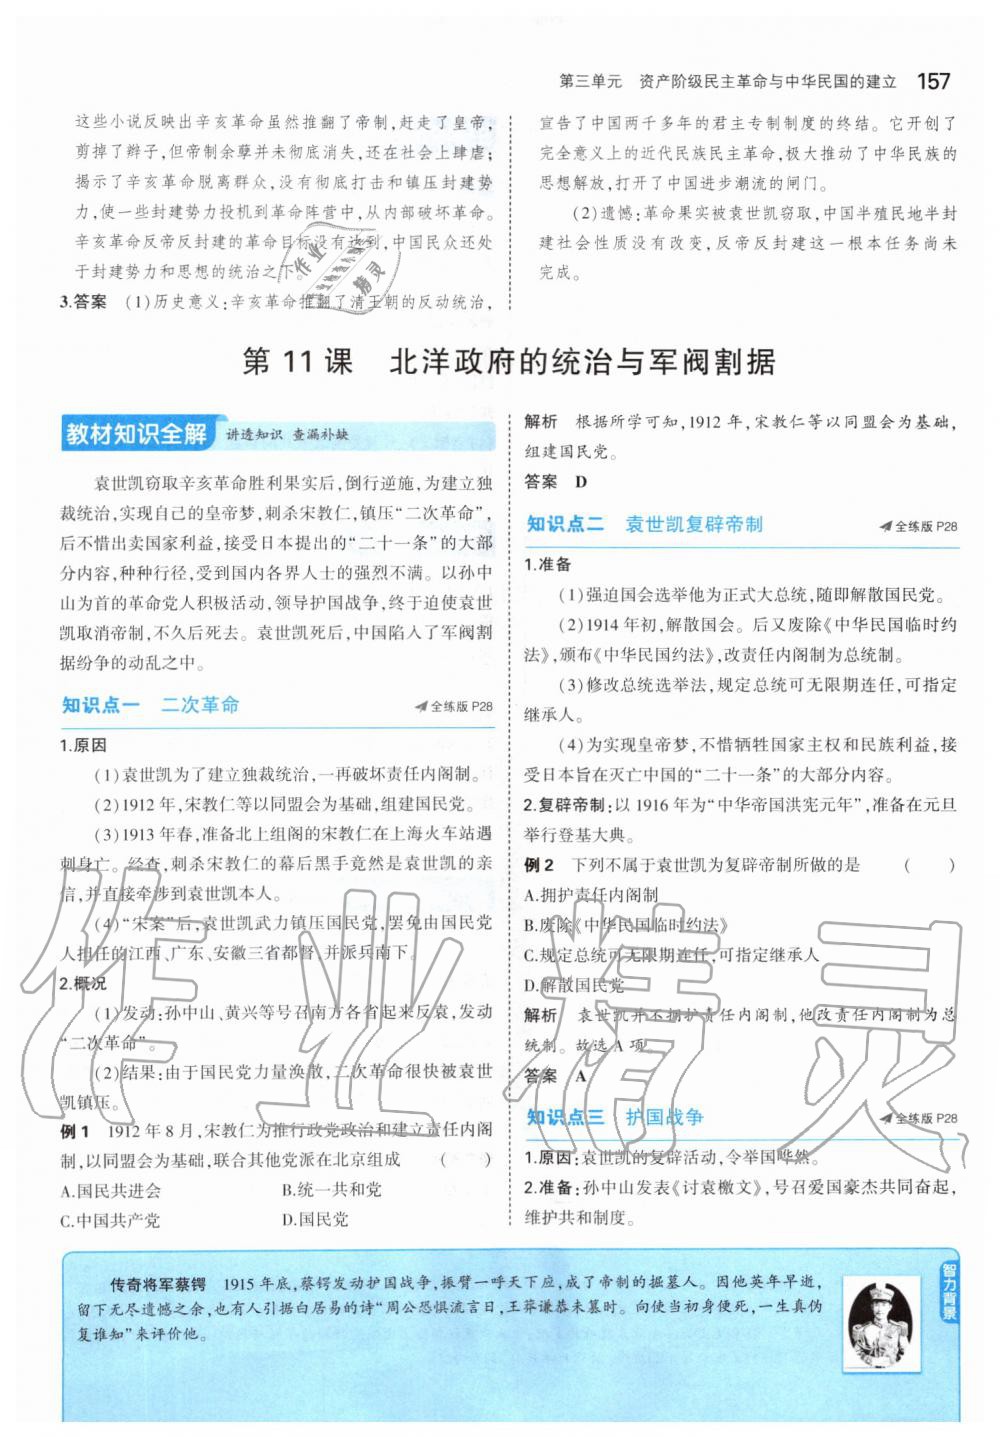 第三单元 资产阶级民主革命与中华民国的建立 157
这些小说反映出辛亥革命虽然推翻了帝制,赶走了皇帝,
剪掉了辫子,但帝制余孽并未彻底消失,还在社会上肆虐;
揭示了辛亥革命脱离群众,没有彻底打击和镇压封建势
力,使一些封建势力投机到革命阵营中,从内部破坏革命。
辛亥革命反帝反封建的革命目标没有达到,中国民众还处
于封建势力和思想的统治之下。
3.答案 (1)历史意义:辛亥革命推翻了清王朝的反动统治,
宣告了中国两千多年的君主专制制度的终结。它开创了
完全意义上的近代民族民主革命,极大推动了中华民族的
思想解放,打开了中国进步潮流的闸门。
(2)遗憾:革命果实被袁世凯窃取,中国半殖民地半封
建社会性质没有改变,反帝反封建这一根本任务尚未
完成。
第 11 课 北洋政府的统治与军阀割据
教材知识全解 讲透知识 查漏补缺
袁世凯窃取辛亥革命胜利果实后,倒行逆施,为建立独
裁统治,实现自己的皇帝梦,刺杀宋教仁,镇压“二次革命”,
后不惜出卖国家利益,接受日本提出的“二十一条”的大部
分内容,种种行径,受到国内各界人士的强烈不满。以孙中
山为首的革命党人积极活动,领导护国战争,终于迫使袁世
凯取消帝制,不久后死去。袁世凯死后,中国陷入了军阀割
据纷争的动乱之中。
知识点一 二次革命 全练版 P28
1.原因
(1)袁世凯为了建立独裁统治,一再破坏责任内阁制。
(2)1912 年,宋教仁等以同盟会为基础,组建国民党。
(3)1913 年春,准备北上组阁的宋教仁在上海火车站遇
刺身亡。经查,刺杀宋教仁的幕后黑手竟然是袁世凯的亲
信,并直接牵涉到袁世凯本人。
(4)“宋案”后,袁世凯武力镇压国民党,罢免由国民党
人担任的江西、广东、安徽三省都督,并派兵南下。
2.概况
(1)发动:孙中山、黄兴等号召南方各省起来反袁,发动
“二次革命”。
(2)结果:由于国民党力量涣散,二次革命很快被袁世
凯镇压。
例 1 1912 年 8 月,宋教仁为推行政党政治和建立责任内阁
制,以同盟会为基础,联合其他党派在北京组成 ( )
A.国民共进会 B.统一共和党
C.中国共产党 D.国民党
解析 根据所学可知,1912 年,宋教仁等以同盟会为基础,
组建国民党。
答案 D
知识点二 袁世凯复辟帝制 全练版 P28
1.准备
(1)强迫国会选举他为正式大总统,随即解散国民党。
(2)1914 年初,解散国会。后又废除《中华民国临时约
法》,颁布《中华民国约法》,改责任内阁制为总统制。
(3)修改总统选举法,规定总统可无限期连任,可指定
继承人。
(4)为实现皇帝梦,不惜牺牲国家主权和民族利益,接
受日本旨在灭亡中国的“二十一条”的大部分内容。
2.复辟帝制:以 1916 年为“中华帝国洪宪元年”,准备在元旦
举行登基大典。
例 2 下列不属于袁世凯为复辟帝制所做的是 ( )
A.拥护责任内阁制
B.废除《中华民国临时约法》
C.规定总统可无限期连任,可指定继承人
D.解散国民党
解析 袁世凯并不拥护责任内阁制,他改责任内阁制为总
统制。故选 A 项。
答案 A
知识点三 护国战争 全练版 P28
1.原因:袁世凯的复辟活动,令举国哗然。
2.准备:孙中山发表《讨袁檄文》,号召爱国豪杰共同奋起,
维护共和制度。
传奇将军蔡锷 1915 年底,蔡锷发动护国战争,振臂一呼天下应,成了帝制的掘墓人。因他英年早逝,
留下无尽遗憾之余,也有人引据白居易的诗“周公恐惧流言日,王莽谦恭未篡时。向使当初身便死,一生真伪
复谁知”来评价他。
智力背景
作业精灵
作业精灵